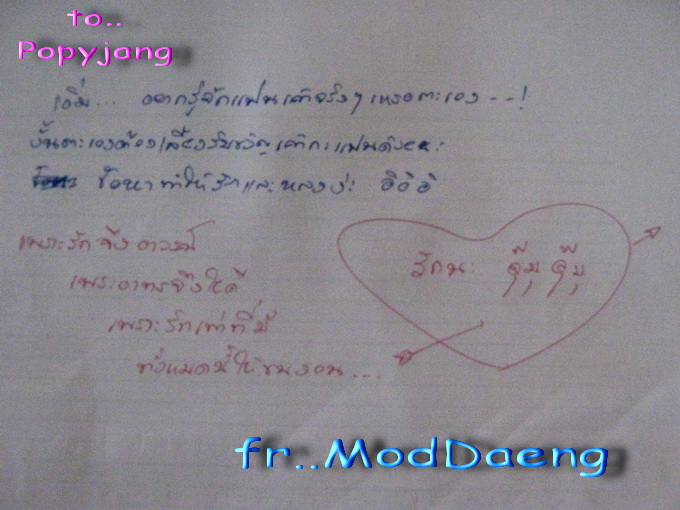 to..
Popyjang
เอิ่ม... อยากรู้จักแฟนเค้าจริงๆ เหรอตะเอง - - !
งั้นตะเองต้องเลี้ยงรับขวัญเค้ากะแฟนด้วยนะ
ข้อหา ทำให้รักและหลงง่ะ อิอิอิ
เพราะรัก จึง อาวรณ์
เพราะอาทรจึงให้ดี
เพราะรักเท่าที่มี
ทั้งหมดนี้ให้ ...
รักนะ จุ๊บ จุ๊บ
fr..ModDaeng